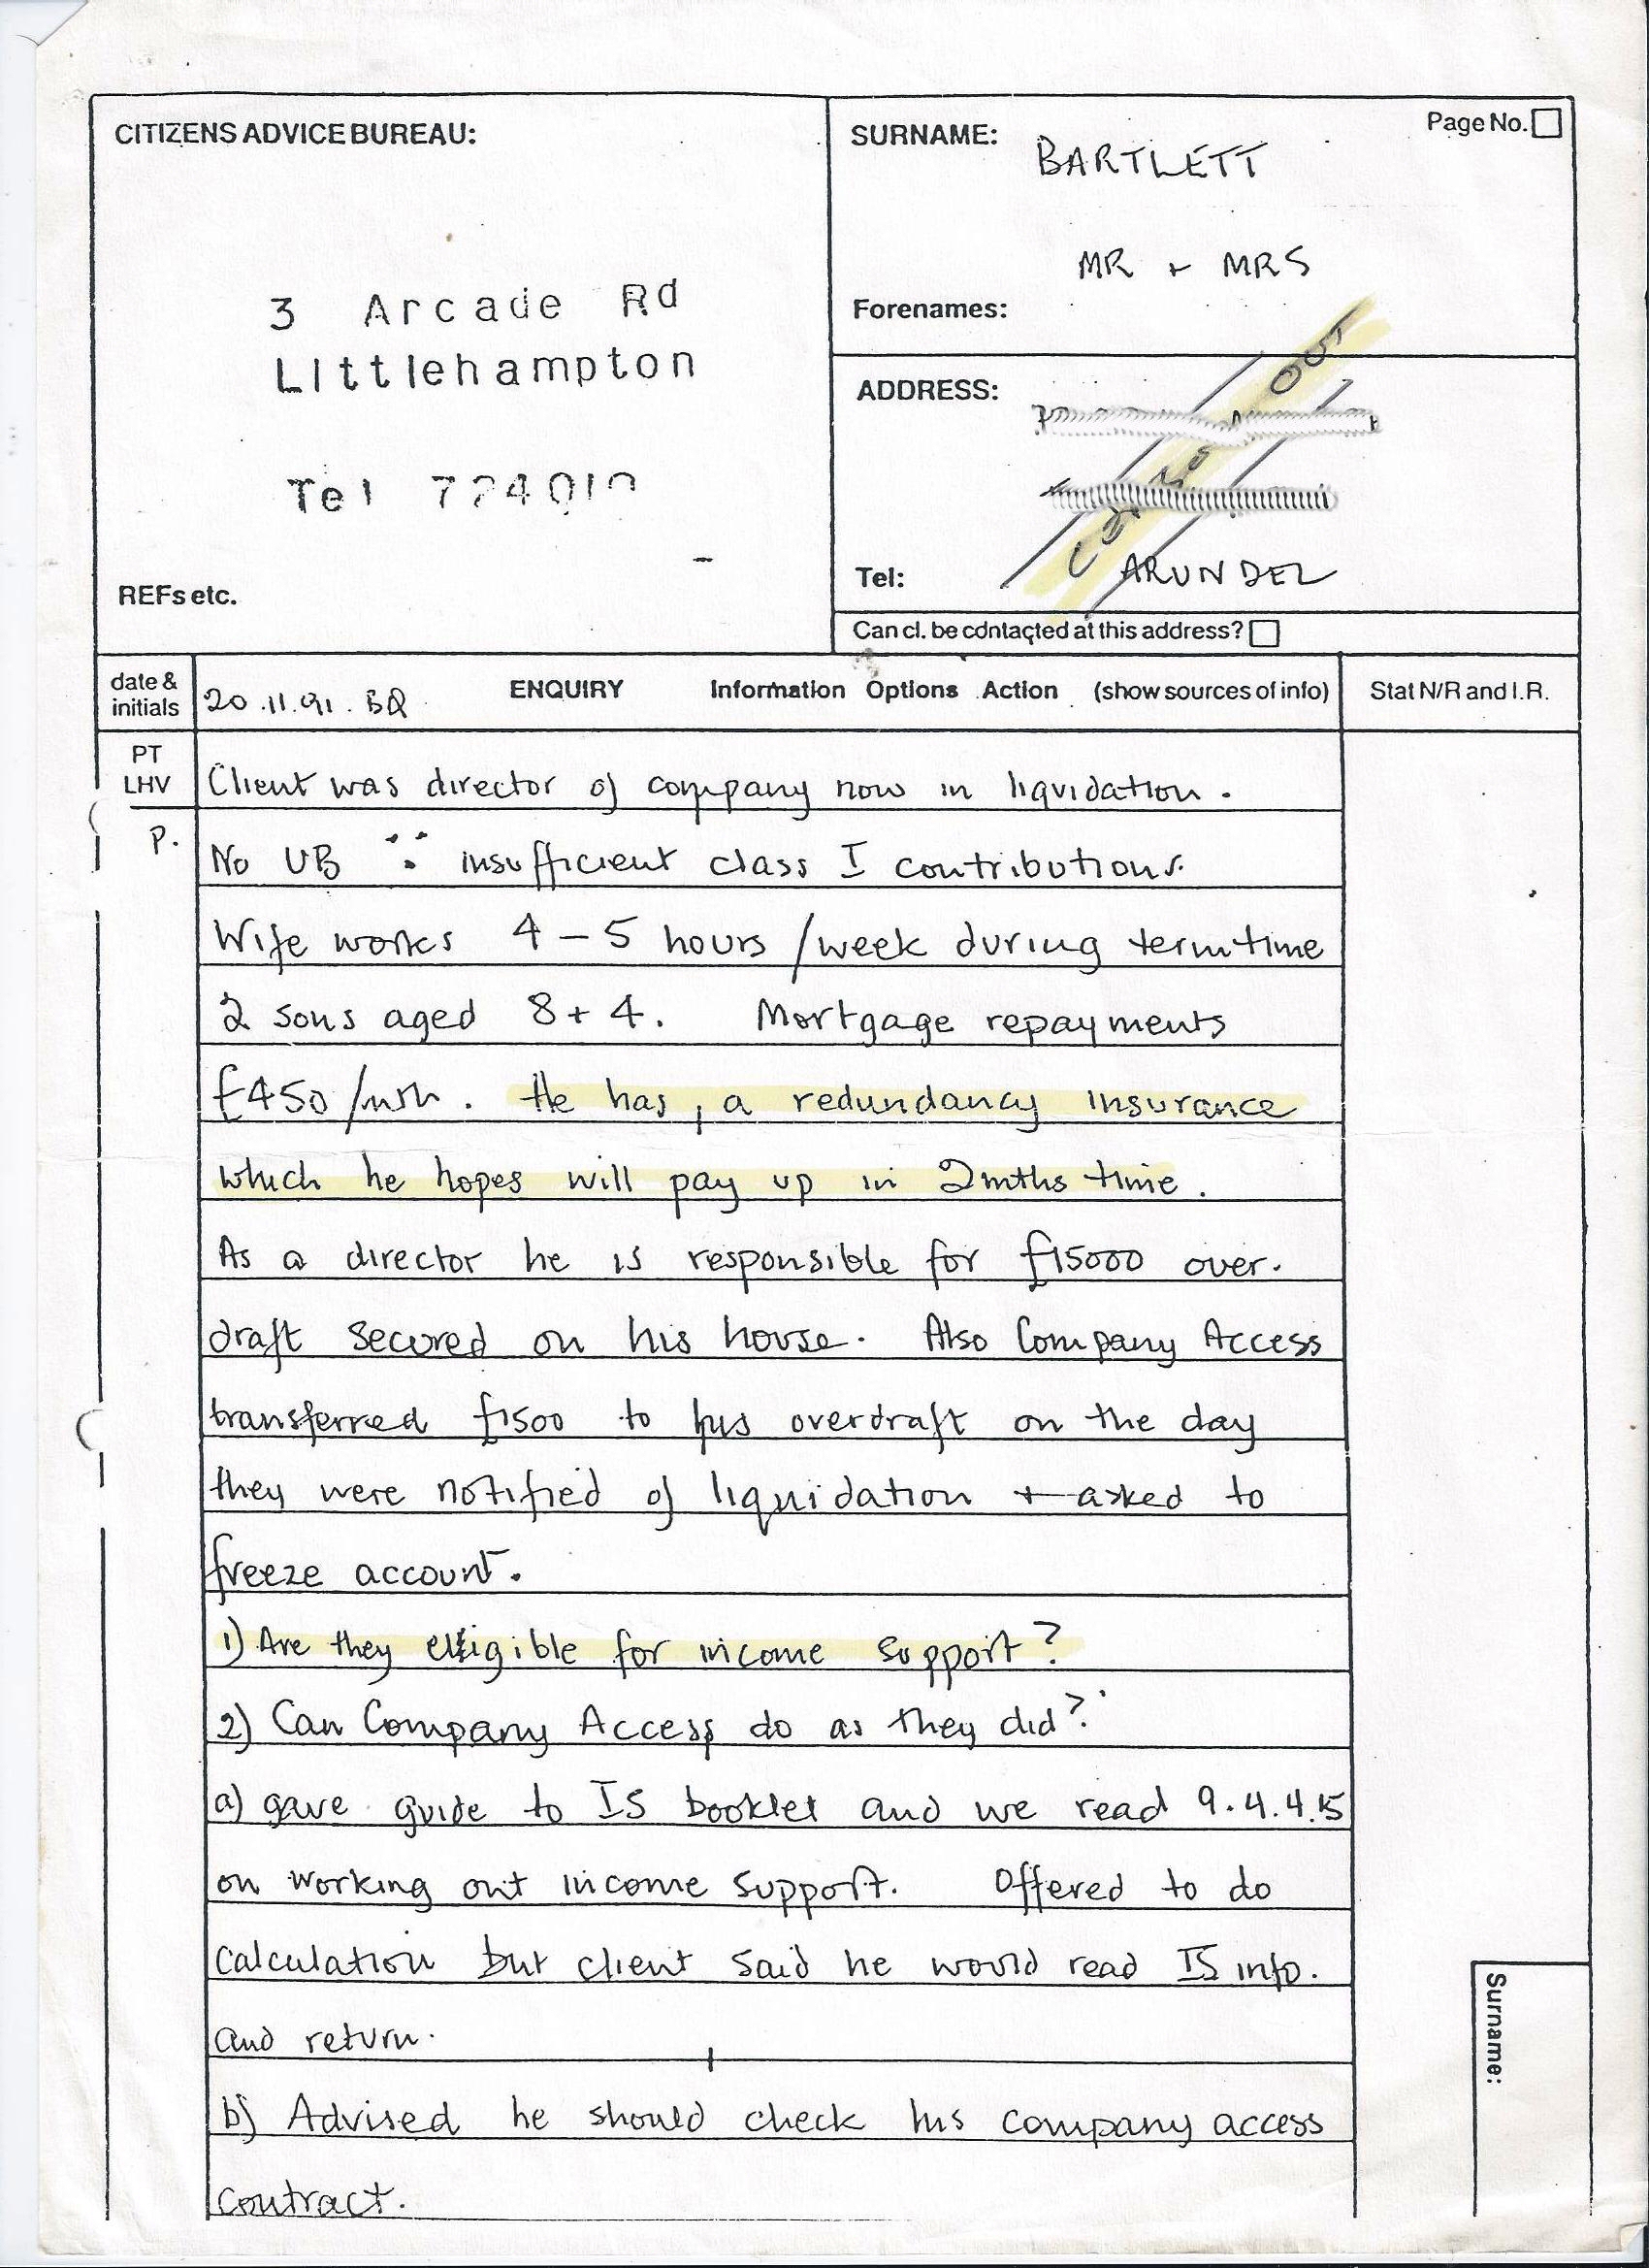 CITIZENS ADVICE BUREAU:
3 Arcade Rd
Littlehampton
Tel 7240
REFs etc.
SURNAME:
Page No.
BARTLETT
MR + MRS
Forenames:
ADDRESS:
OUT
Tel:
ARUNDEL
Can cl. be contacted at this address?
date & initials
20.11.91. BQ
ENQUIRY Information Options Action (show sources of info)
Stat N/R and I.R.
PT
LHV
P.
Client was director of company now in liquidation.
No UB ∵ insufficient class I contributions.
Wife works 4 – 5 hours /week during termtime
2 sons aged 8 + 4. Mortgage repayments
£450 /mth. He has, a redundancy insurance
which he hopes will pay up in 2mths time.
As a director he is responsible for £15000 over.
draft secured on his house. Also Company Access
transferred £1500 to his overdraft on the day
they were notified of liquidation + asked to
freeze account.
1) Are they eligible for income support?
2) Can Company Access do as they did?
a) gave guide to IS booklet and we read 9.4.4.15
on working out income support. Offered to do
calculation but client said he would read IS info.
and return.
b) Advised he should check his company access
contract.
Surname: